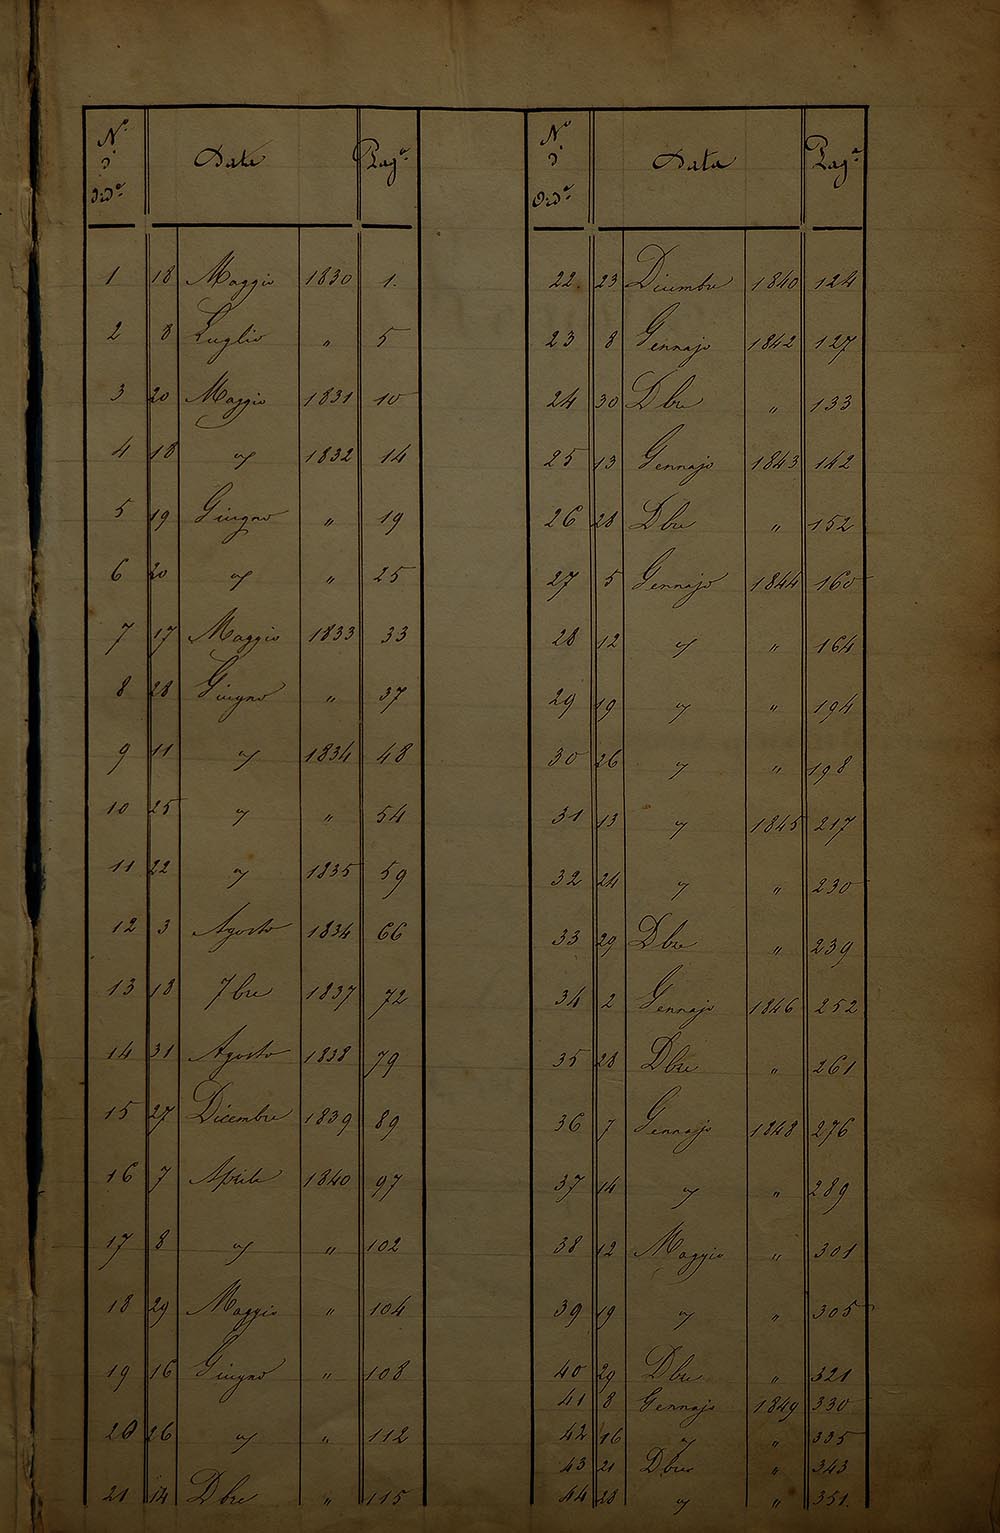 N.º d. Ord.e Data Pag.a
1 18 Maggio 1830 1.
2 8 Luglio " 5
3 20 Maggio 1831 10
4 18 " 1832 14
5 19 Giugno " 19
6 20 " " 25
7 17 Maggio 1833 33
8 28 Giugno " 37
9 11 " 1834 48
10 25 " " 54
11 22 " 1835 59
12 3 Agosto 1834 66
13 18 7bre 1837 72
14 31 Agosto 1838 79
15 27 Dicembre 1839 89
16 7 Aprile 1840 97
17 8 " " 102
18 29 Maggio " 104
19 16 Giugno " 108
20 26 " " 112
21 14 Dbre " 115
N.º d. Ord.e Data Pag.a
22 23 Dicembre 1840 124
23 8 Gennajo 1842 127
24 30 Dbre " 133
25 13 Gennajo 1843 142
26 28 Dbre " 152
27 5 Gennajo 1844 160
28 12 " " 164
29 19 " " 194
30 26 " " 198
31 13 " 1845 217
32 24 " " 230
33 29 Dbre " 239
34 2 Gennajo 1846 252
35 28 Dbre " 261
36 7 Gennajo 1848 276
37 14 " " 289
38 12 Maggio " 301
39 19 " " 305
40 29 Dbre " 321
41 8 Gennajo 1849 330
42 16 " " 335
43 21 Dbre " 343
44 28 " " 351.